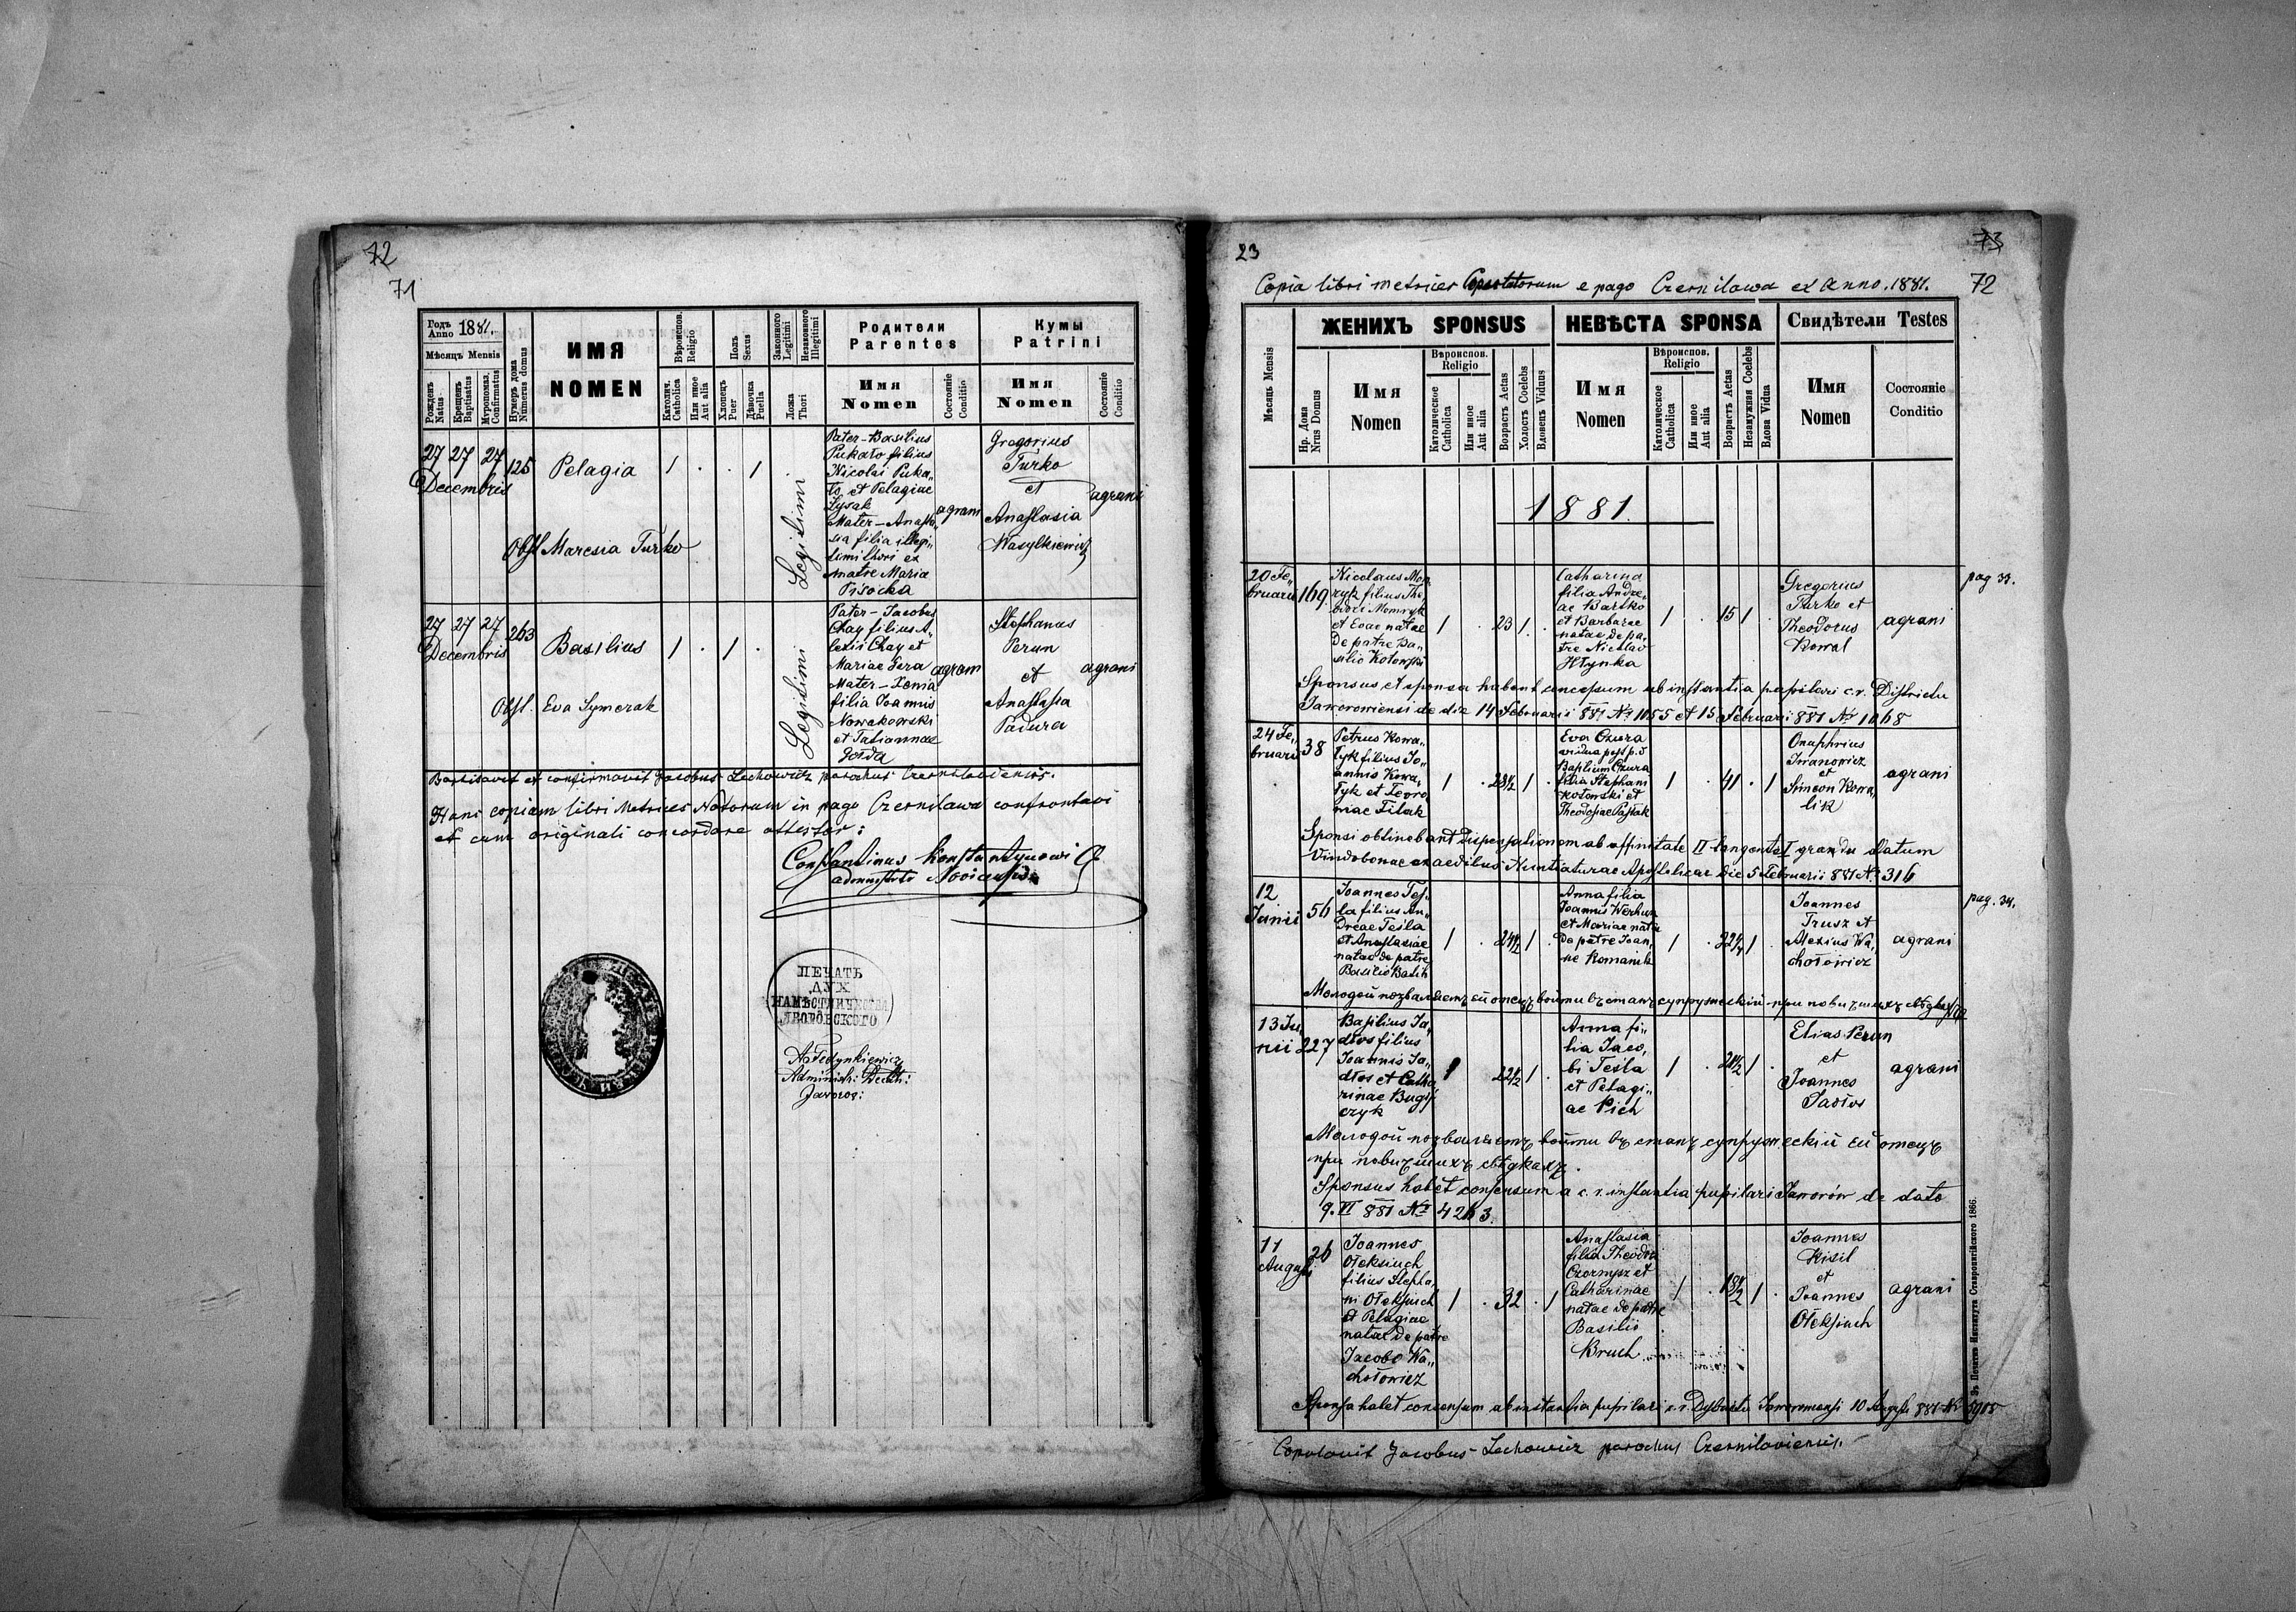 72
71
Годъ Anno 1881.
Мѣсяць Mensis
Рожденъ Natus
Крещенъ Baptisatus
Мѵропомаз. Confirmatus
Нумеръ дома Numerus domus
ИМЯ
NOMEN
Вѣроиспов. Religio
Католич. Catholica
Или иное Aut alia
Полъ Sexus
Хлопець Puer
Дѣвочка Puella
Законного Legitimi
Незаконного Illegitimi
Ложа Thori
Родители
Parentes
Имя
Nomen
Состояніе Conditio
Кумы
Patrini
Имя
Nomen
Состояніе Conditio
27 27 27
Decembris
125
Pelagia
1 . . 1
Legitimi
Pater - Basilius
Pukato filius
Nicolai Puka„
to et Pelagiae
Lysak
Mater - Anasta„
sia filia illegi„
timi thori ex
matre Maria
Pisocka
agrani
Gregorius
Turko
et
Anastasia
Wasylkiewicz
agrani
Obst Maresia Turko
27 27 27
Decembris
263
Basilius
1 . 1 .
Legitimi
Pater - Jacobus
Chay filius A„
lexii Chay et
Mariae Gera
Mater - Xenia
filia Joannis
Nowakowski
et Tatiannae
Goida
agrani
Stephanus
Perun
et
Anastasia
Padura
agrani
Obst. Eva Symczak
Baptisavit et confirmavit Jacobus Lechowicz parochus Czernilaviensis.
Hanc copiam libri Metrices Natorum in pago Czernilawa confrontavi
et cum originali concordare attestor:
Constantinus Konstantynowicz
ПЕЧАТЬ
ДУХ
НАМѢСТНИЧЕСТВА
ЯВОРОВСКОГО
A Fedynkiewicz
Administr: Decth:
Jaworov:
23
73
Copia libri metrices Copulatorum e pago Czernilawa ex Anno. 1881.
72
Мѣсяць Mensis
ЖЕНИХЪ SPONSUS
Нр. Дома Nrus Domus
Имя
Nomen
Вѣроиспов. Religio
Католическое Catholica
Или иное Aut alia
Возрастъ Aetas
Холостъ Coelebs
Вдовецъ Viduus
НЕВѢСТА SPONSA
Имя
Nomen
Вѣроиспов. Religio
Католическое Catholica
Или иное Aut alia
Возрастъ Aetas
Незамужная Coelebs
Вдова Vidua
Свидѣтели Testes
Имя
Nomen
Состояніе
Conditio
1881.
20 Fe„
bruarii
169
Nicolaus Mom„
ryk filius The„
odori Momryk
et Evae natae
de patre Ba„
silio Kotowski
1 . 23 1 .
Catharina
filia Andre„
ae Bartko
et Barbarae
natae de pa„
tre Nicolao
Hlynka
1 . 15 1 .
Gregorius
Turko et
Theodorus
Kowal
agrani
pag 33.
Sponsus et sponsa habent concessum ab instantia pupilari c.r. Districtu
Jaworowiensi de die 14 Februarii 881 No 1055 et 15 Februarii 881 No 1068
24 Fe„
bruarii
38
Petrus Kowa„
lyk filius Jo„
annis Kowa„
lyk et Fevro„
niae Filak
1 . 28½ 1 .
Eva Ozura
vidua post p.d
Basilium Ozura
filia Stephani
Kotowski et
Theodosiae Pastak
1 . 41 . 1
Onuphrius
Iwanowicz
et
Simeon Kowa„
lik
agrani
Sponsi obtinebant Dispensationem ab affinitate II tangente I gradu datum
Vindobonae ex aedibus Nuntiaturae Apostolicae die 5 Februarii 881 No 316
12
Junii
56
Joannes Tes„
la filius An„
dreae Tesla
et Anastasiae
natae de patre
Basilio Balik
1 . 24½ 1 .
Anna filia
Joannis Werhun
et Mariae natae
de patre Joan„
ne Romanik
1 . 22¼ 1 .
Joannes
Trusz et
Alexius Wa„
chołowicz
agrani
pag. 34.
Молодой позваляетъ ей отецъ войти въ станъ супружескій при повысшихъ свѣдкахъ
13 Ju„
nii
227
Basilius Ja„
dłos filius
Joannis Ja„
dłos et Catha„
rinae Bugy„
czyk
1 22½ 1 .
Anna fi„
lia Jaco„
bi Tesla
et Pelagi„
ae Pich
1 . 20½ 1 .
Elias Perun
et
Joannes
Jadlos
agrani
Молодой позваляетъ войти въ станъ супружескій ей отецъ
при повысшихъ свѣдкахъ.
Sponsus habet consensum a c. r. instantia pupilari Jaworów de dato
9. VI 881 No 4263.
11
Augusti
26
Joannes
Oleksiuch
filius Stepha„
ni Oleksiuch
et Pelagiae
natae de patre
Jacobo Wa„
chołowicz
1 . 32 . 1
Anastasia
filia Theodori
Czornysz et
Catharinae
natae de patre
Basilio
Bruch
1 . 18½ 1 .
Joannes
Kisil
et
Joannes
Oleksiuch
agrani
Sponsa habet consensum ab instantia pupilari c.r. Districtu Jaworowensi 10 Augusti 881 No 5908
Copulavit Jacobus Lechowicz parochus Czernilaviensis.
Зъ Печатнѣ Института Ставропигійского 1866.